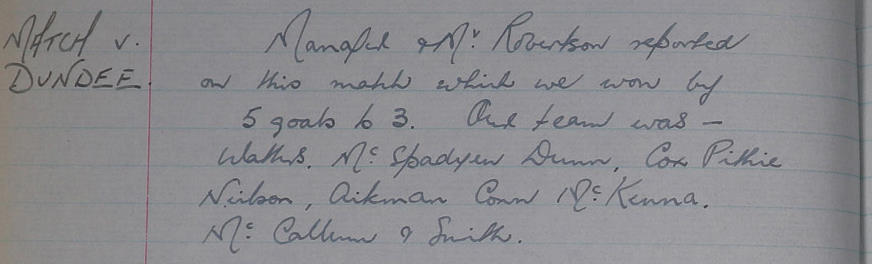 MATCH v.
DUNDEE.
Manager & Mr Robertson reported
on this match which we won by
5 goals to 3. Our team was —
Watters. Mc Spadyen Dunn, Cox Pithie
Neilson, Aikman Conn McKenna.
Mc Callum & Smith.